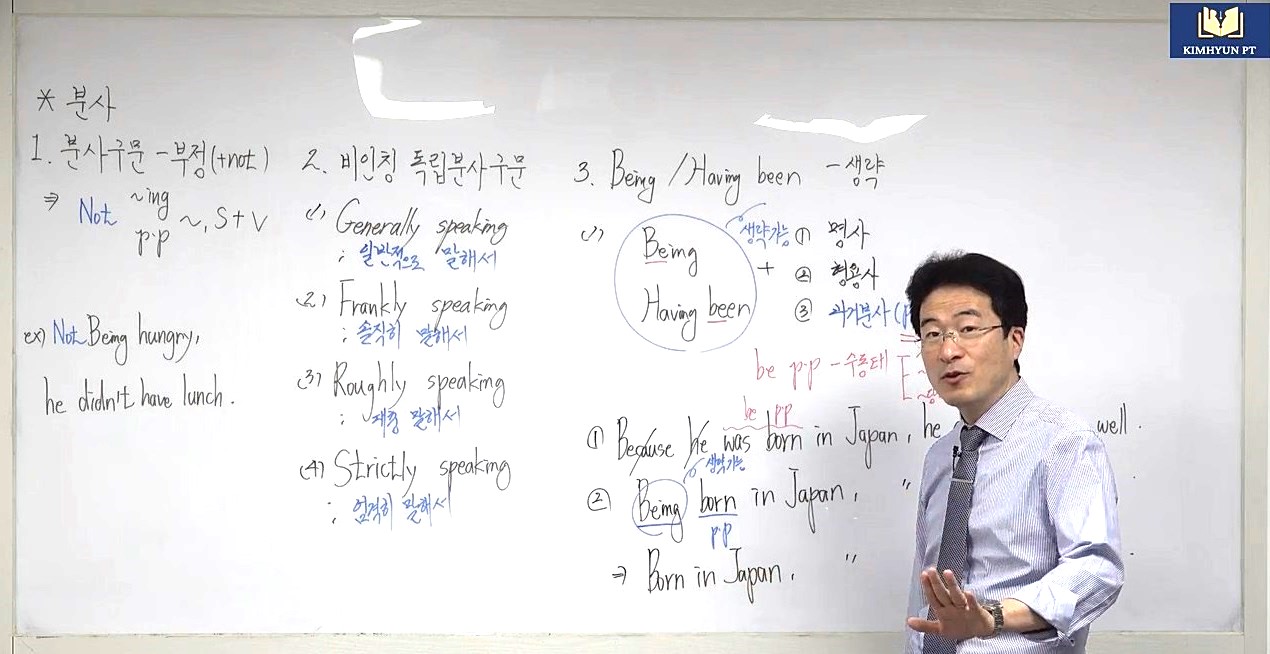 KIMHYUN PT
* 분사
1. 분사구문 - 부정(+not)
⇒ Not ~ing
p.p ~, S+V
ex) Not Being hungry,
he didn't have lunch.
2. 비인칭 독립분사구문
(1) Generally speaking
; 일반적으로 말해서
(2) Frankly speaking
; 솔직히 말해서
(3) Roughly speaking
; 대충 말해서
(4) Strictly speaking
; 엄격히 말해서
3. Being / Having been - 생략
(1) Being
Having been
생략가능
+ ① 명사
② 형용사
③ 과거분사 (p
be p.p - 수동태
be pp
① Because he was born in Japan, he well.
생략가능
② Being born in Japan, "
p.p
⇒ Born in Japan, "